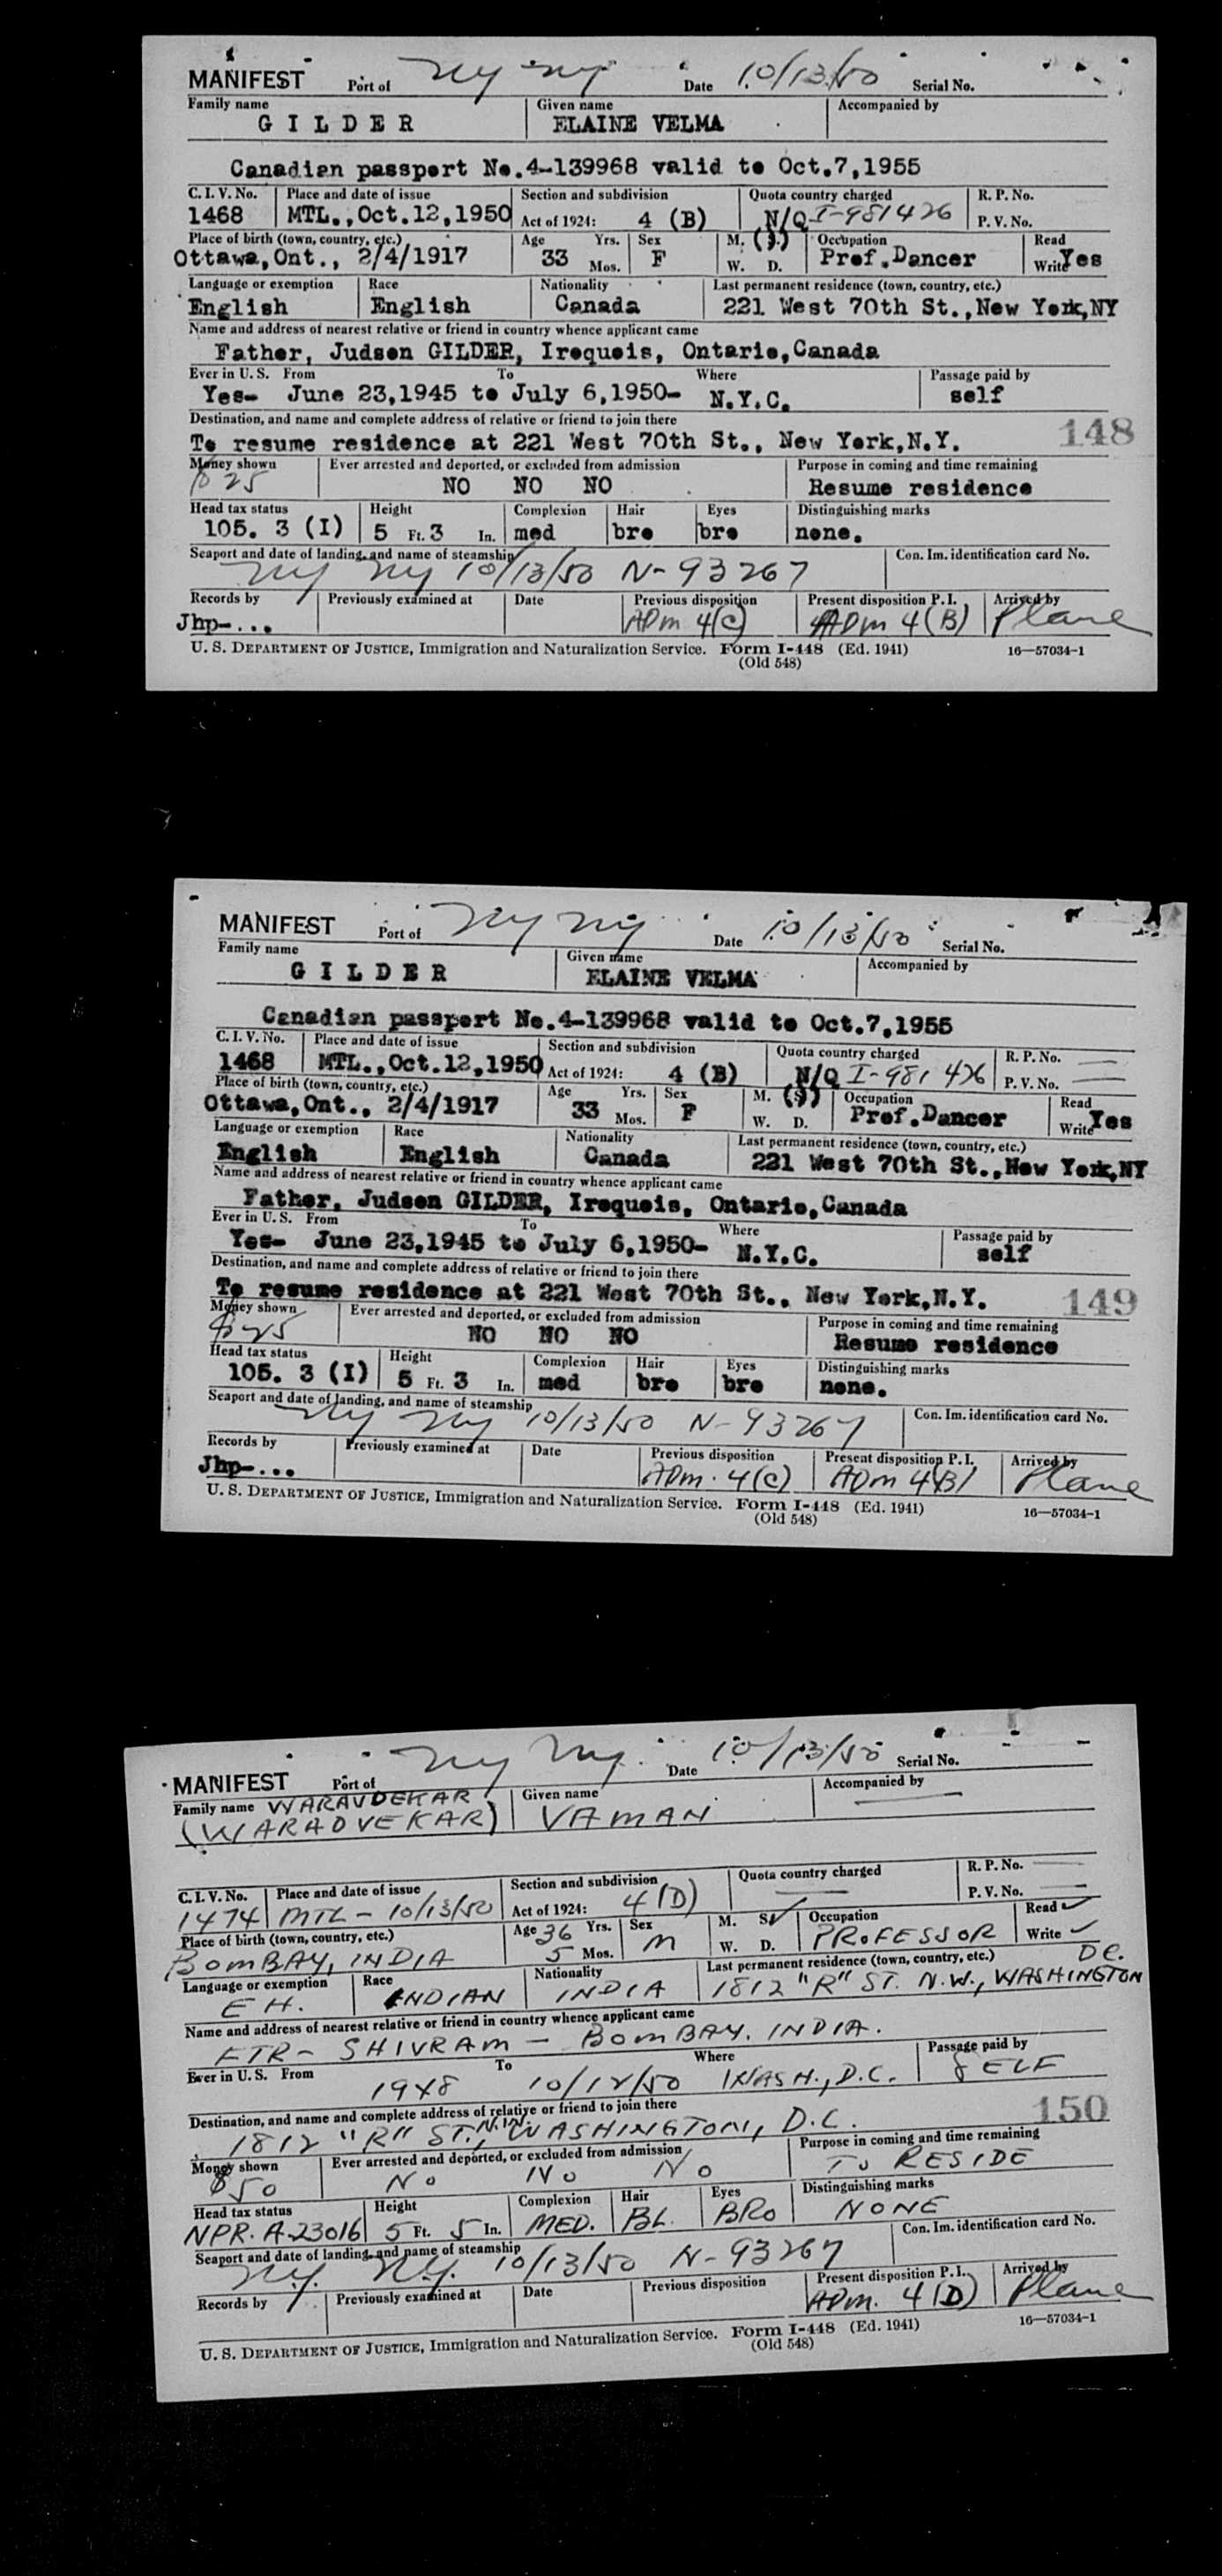 MANIFEST Port of NY NY Date 10/13/50 Serial No.
Family name Given name Accompanied by
GILDER ELAINE VELMA
Canadian passport No.4-139968 valid to Oct.7,1955
C. I. V. No. Place and date of issue Section and subdivision Quota country charged R. P. No.
1468 MTL., Oct.12,1950 Act of 1924: 4 (B) N/Q I-981426 P. V. No.
Place of birth (town, country, etc.) Age Yrs. Sex M. (S.) Occupation Read
Ottawa, Ont., 2/4/1917 33 Mos. F W. D. Prof.Dancer Write Yes
Language or exemption Race Nationality Last permanent residence (town, country, etc.)
English English Canada 221 West 70th St.,New York,NY
Name and address of nearest relative or friend in country whence applicant came
Father, Judson GILDER, Iroquois, Ontario,Canada
Ever in U. S. From To Where Passage paid by
Yes- June 23,1945 to July 6,1950- N.Y.C. self
Destination, and name and complete address of relative or friend to join there
To resume residence at 221 West 70th St., New York,N.Y. 148
Money shown Ever arrested and deported, or excluded from admission Purpose in coming and time remaining
$25 NO NO NO Resume residence
Head tax status Height Complexion Hair Eyes Distinguishing marks
105. 3 (I) 5 Ft. 3 In. med bro bro none.
Seaport and date of landing, and name of steamship Con. Im. identification card No.
NY NY 10/13/50 N-93267
Records by Previously examined at Date Previous disposition Present disposition P. I. Arrived by
Jhp-... ADM 4(C) ADM 4(B) Plane
U. S. DEPARTMENT OF JUSTICE, Immigration and Naturalization Service. Form I-448 (Ed. 1941) 16—57034-1
(Old 548)
MANIFEST Port of NY NY Date 10/13/50 Serial No.
Family name Given name Accompanied by
GILDER ELAINE VELMA
Canadian passport No.4-139968 valid to Oct.7,1955
C. I. V. No. Place and date of issue Section and subdivision Quota country charged R. P. No.
1468 MTL., Oct.12,1950 Act of 1924: 4 (B) N/Q I-981426 P. V. No.
Place of birth (town, country, etc.) Age Yrs. Sex M. (S) Occupation Read
Ottawa, Ont., 2/4/1917 33 Mos. F W. D. Prof.Dancer Write Yes
Language or exemption Race Nationality Last permanent residence (town, country, etc.)
English English Canada 221 West 70th St.,New York,NY
Name and address of nearest relative or friend in country whence applicant came
Father, Judson GILDER, Iroquois, Ontario,Canada
Ever in U. S. From To Where Passage paid by
Yes- June 23,1945 to July 6,1950- N.Y.C. self
Destination, and name and complete address of relative or friend to join there
To resume residence at 221 West 70th St., New York,N.Y. 149
Money shown Ever arrested and deported, or excluded from admission Purpose in coming and time remaining
$25 NO NO NO Resume residence
Head tax status Height Complexion Hair Eyes Distinguishing marks
105. 3 (I) 5 Ft. 3 In. med bro bro none.
Seaport and date of landing, and name of steamship Con. Im. identification card No.
NY NY 10/13/50 N-93267
Records by Previously examined at Date Previous disposition Present disposition P. I. Arrived by
Jhp-... ADM. 4(C) ADM 4(B) Plane
U. S. DEPARTMENT OF JUSTICE, Immigration and Naturalization Service. Form I-448 (Ed. 1941) 16—57034-1
(Old 548)
MANIFEST Port of NY NY. Date 10/13/50 Serial No.
Family name WARAVDEKAR Given name Accompanied by
(WARADVEKAR) VAMAN
C. I. V. No. Place and date of issue Section and subdivision Quota country charged R. P. No.
1474 MTL - 10/13/50 Act of 1924: 4(D) P. V. No.
Place of birth (town, country, etc.) Age 36 Yrs. Sex M. S. Occupation Read ✓
BOMBAY, INDIA 5 Mos. M W. D. PROFESSOR Write ✓
Language or exemption Race Nationality Last permanent residence (town, country, etc.) DC.
EH. INDIAN INDIA 1812 "R" ST. N.W., WASHINGTON
Name and address of nearest relative or friend in country whence applicant came
FTR- SHIVRAM - BOMBAY, INDIA.
Ever in U. S. From To Where Passage paid by
1948 10/12/50 WASH., D.C. SELF
Destination, and name and complete address of relative or friend to join there
1812 "R" ST., N.W. WASHINGTON, D.C. 150
Money shown Ever arrested and deported, or excluded from admission Purpose in coming and time remaining
$50 No No No To RESIDE
Head tax status Height Complexion Hair Eyes Distinguishing marks
NPR. A-23016 5 Ft. 5 In. MED. BL. BRO NONE
Seaport and date of landing, and name of steamship Con. Im. identification card No.
N.Y. N.Y. 10/13/50 N-93267
Records by Previously examined at Date Previous disposition Present disposition P. I. Arrived by
ADM. 4(D) Plane
U. S. DEPARTMENT OF JUSTICE, Immigration and Naturalization Service. Form I-448 (Ed. 1941) 16—57034-1
(Old 548)